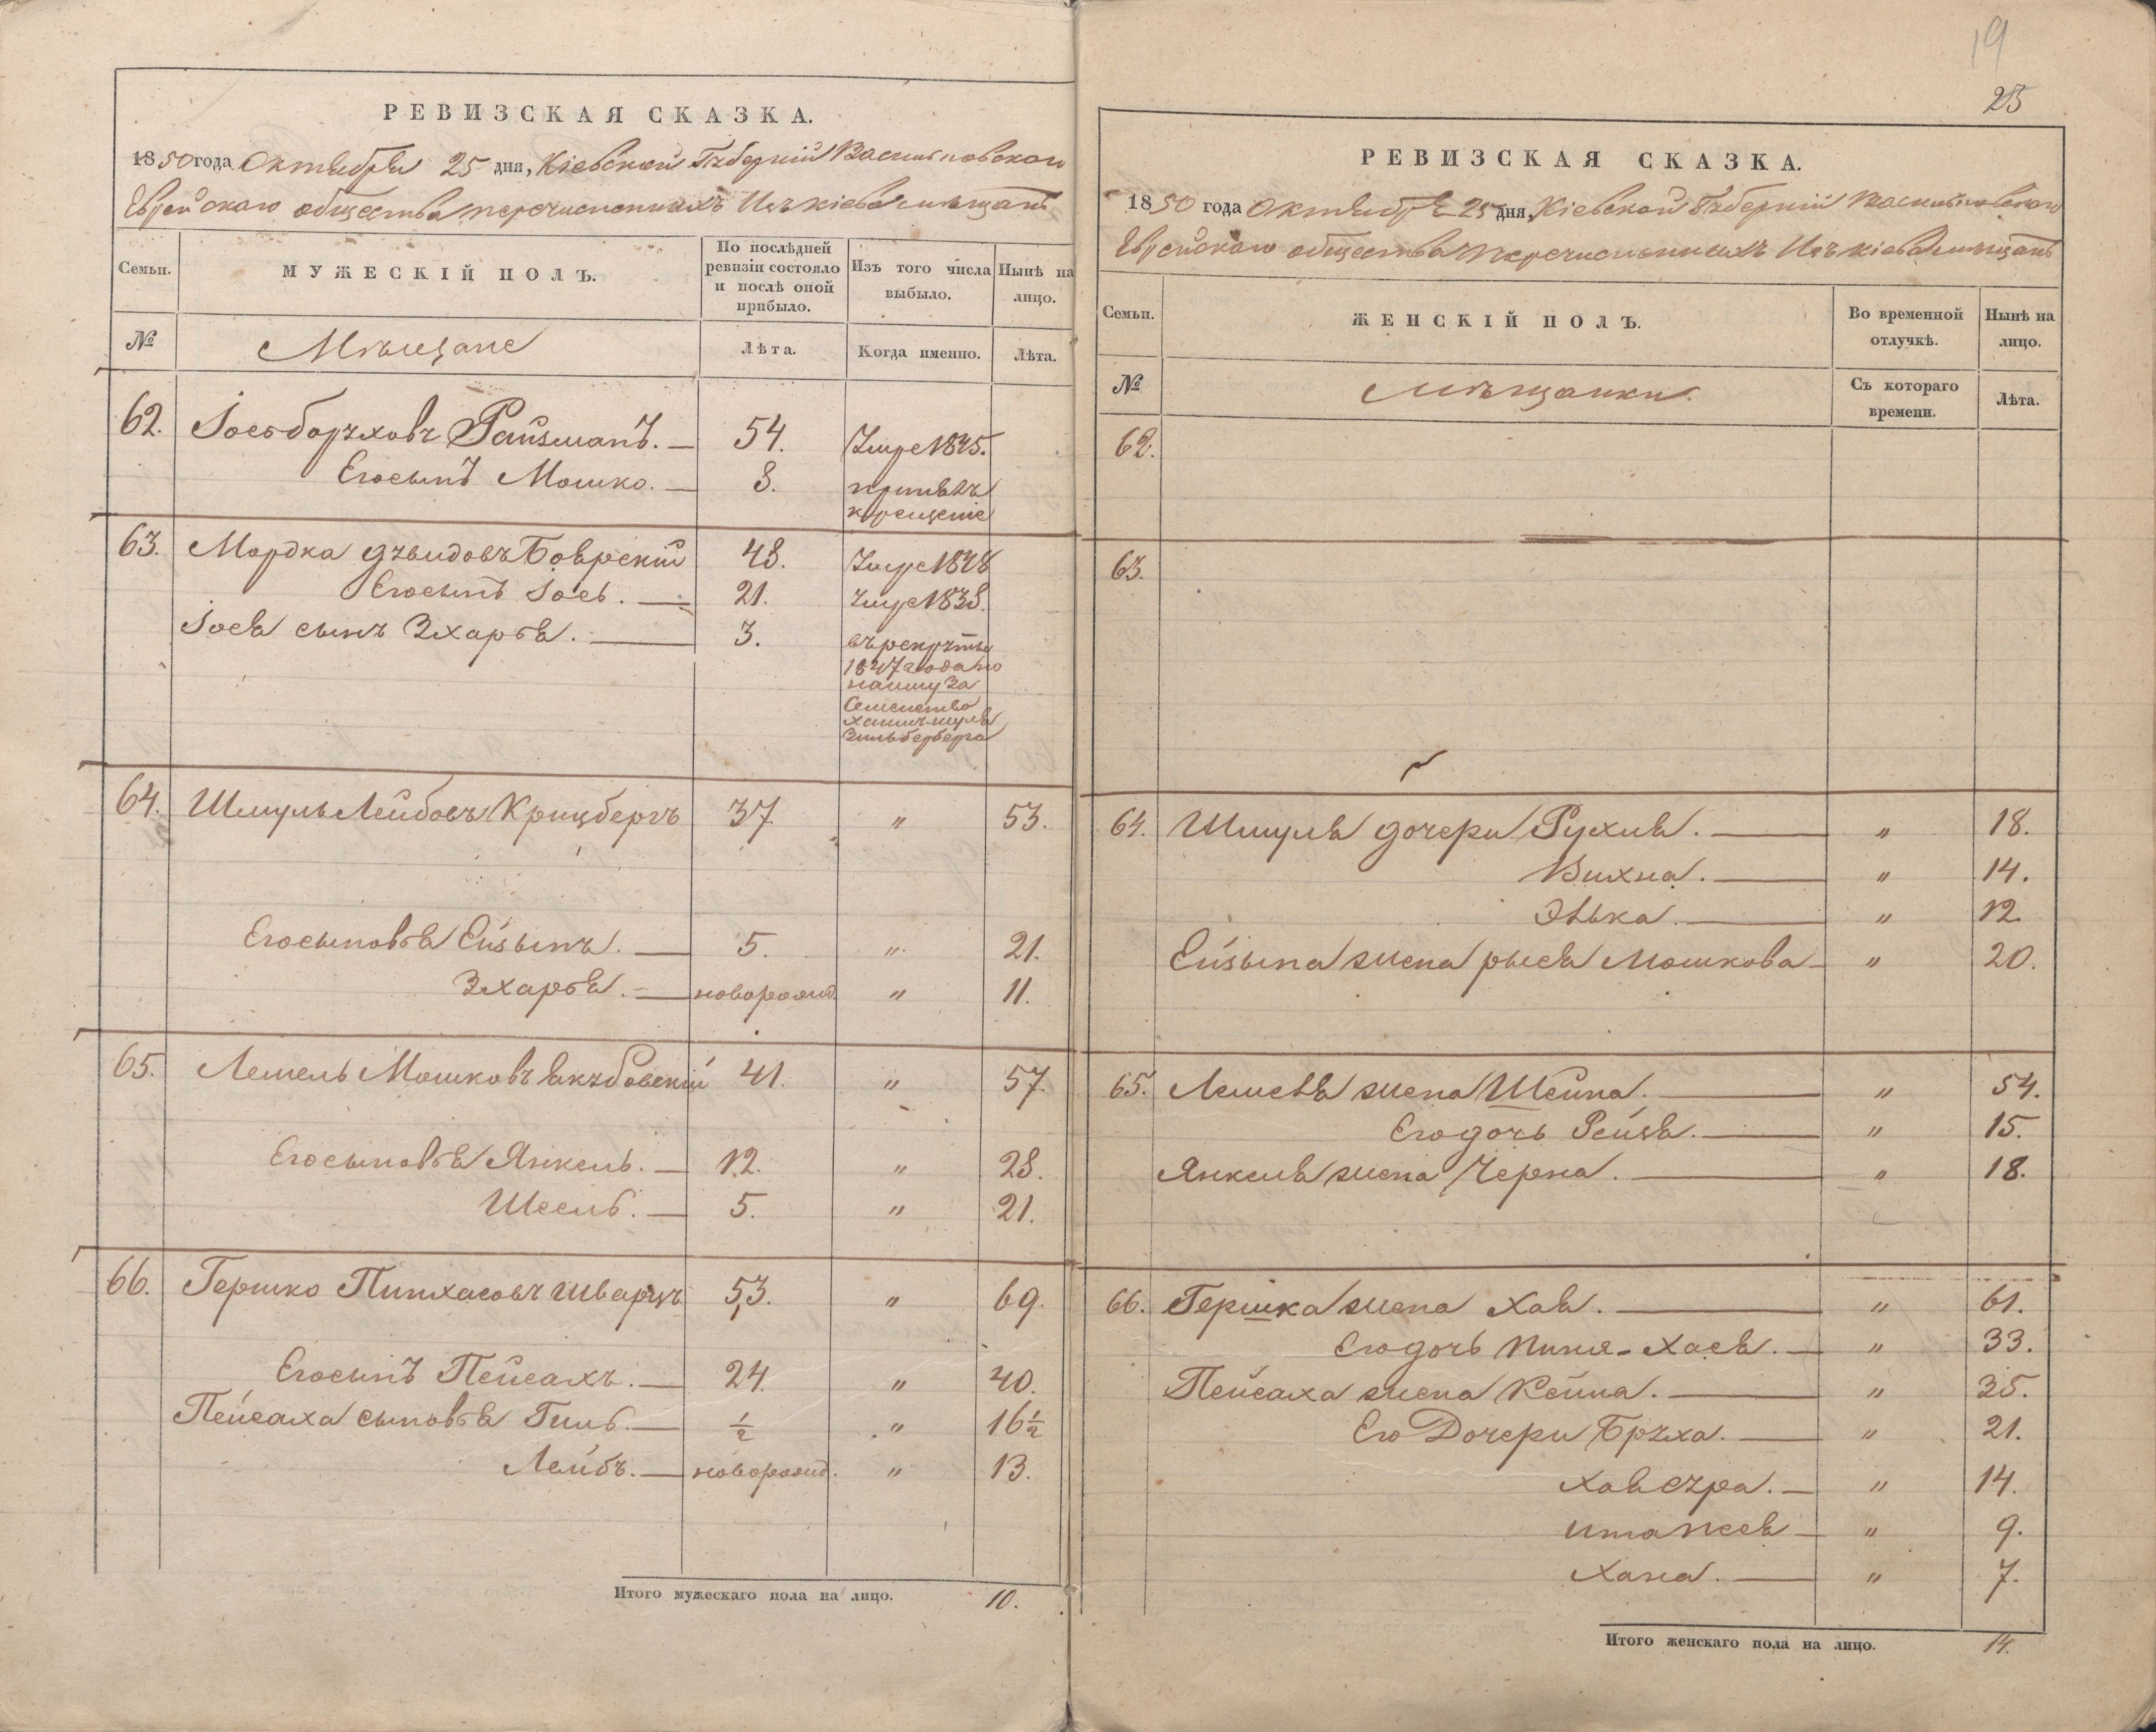 РЕВИЗСКАЯ СКАЗКА.
1850 года Октября 25 дня, Кіевской Губерніи Васильковскаго
Еврейскаго общества перечисленныхъ Изъ Кіева мѣщанъ
Семьи.
МУЖЕСКІЙ ПОЛЪ.
По послѣдней ревизіи состояло и послѣ оной прибыло.
Изъ того числа выбыло.
Нынѣ на лицо.
№
Мѣщане
Лѣта.
Когда именно.
Лѣта.
62. Іось борѫховъ Райзманъ. — 54. Умре 1845.
Его сынъ Мошко. — 8. принялъ
крещеніе
63. Мордка Давидовъ 48. Умре 1848
Его сынъ Іось. — 21. умре 1838.
Іося сынъ Зхарья. — 3. въ рекруты
1847 года по
найму За
Семейство
Хаимъ-шуля
Зильберберга
64. Шмуль Лейбовъ Крицбергъ 37 " 53.
Его сыновья Ейзынъ. — 5. " 21.
Зхарья. — новорожд. " 11.
65. Лемель Мошковъ Якубовскій 41. " 57.
Его сыновья Янкель. — 12. " 28.
Шсель. — 5. " 21.
66. Гершко Пинхасовъ Шварцъ 53. " 69.
Его сынъ Пейсахъ. — 24. " 40.
Пейсаха сыновья Гиль. — ½ " 16½
Лейбъ. — новорожд. " 13.
Итого мужескаго пола на лицо. 10.
19
23
РЕВИЗСКАЯ СКАЗКА.
1850 года Октября 25 дня, Кіевской Губерніи Васильковскаго
Еврейскаго общества перечисленныхъ Изъ Кіева мѣщанъ
Семьи.
ЖЕНСКІЙ ПОЛЪ.
Во временной отлучкѣ.
Нынѣ на лицо.
№
Мѣщанки.
Съ котораго времени.
Лѣта.
62.
63.
64. Шмуля дочери Рухля. — " 18.
Вихна. — " 14.
Элька. — " 12.
Ейзына жена рыся Мошкова — " 20.
65. Лемеля жена Шейна. — " 54.
Его дочь Рейзя. — " 15.
Янкеля жена Черна. — " 18.
66. Гершка жена Хая. — " 61.
Его дочь Пиня-Хася. — " 33.
Пейсаха жена Рейна. — " 35.
Его Дочери Бруха. — " 21.
Хая Сура. — " 14.
Ита Песя — " 9.
Хана. — " 7.
Итого женскаго пола на лицо. 14.